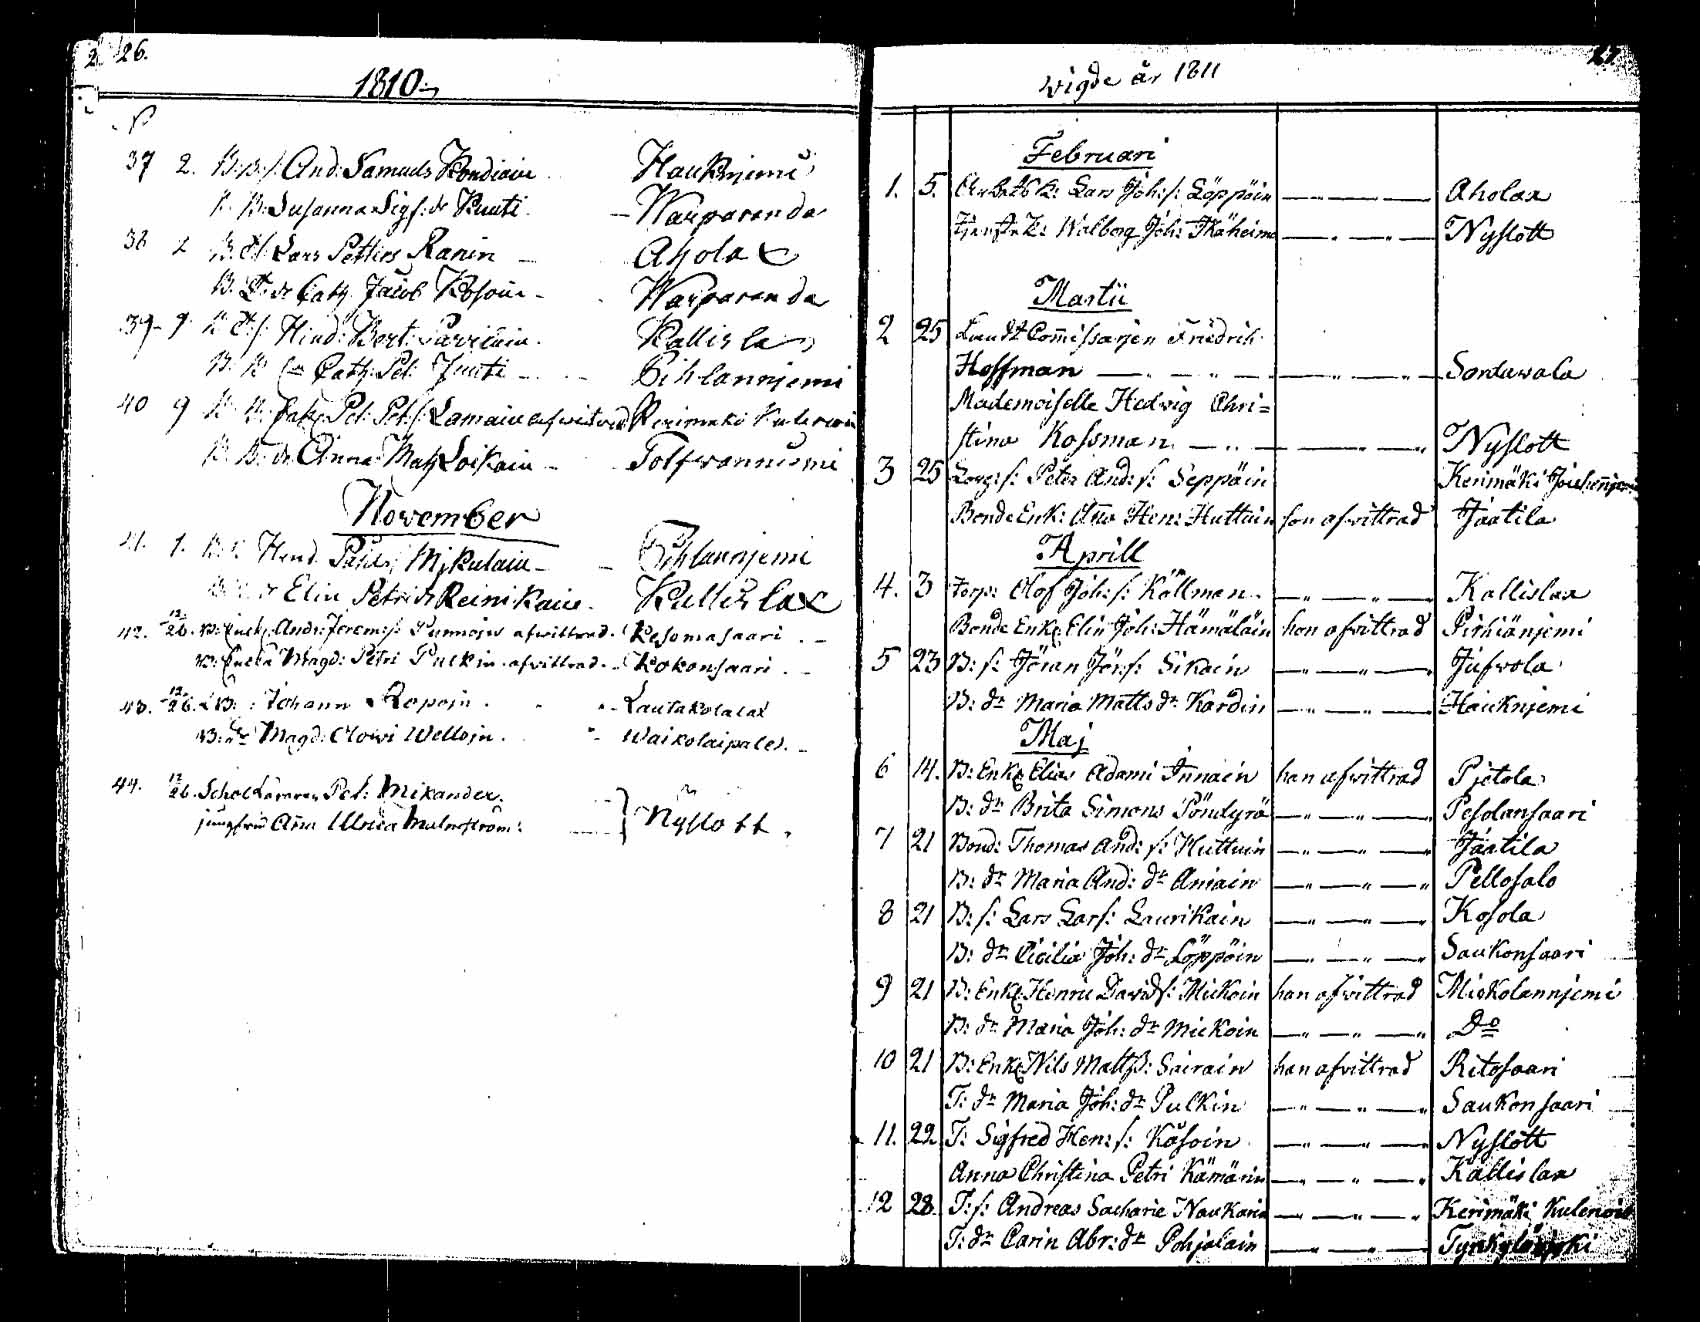 26.
1810
37 2. B: B: s: And: Samuels Kondiain Hauknjemi
B. B: Susanna Sigf: dr Kuuti Warparanda
38 2 Lars Petters Ranin Aholax
B. dr Cath. Jacob Kosoin Warparanda
39 9 Hind: Bert: Parviain Kallisla
Cath: Pet: Juuti Pihlannjemi
40 9 Pet: Pet: s: Lamain afwittrad Kerimäki Kulerwoi
B: dr Anna Math Loikain Tolfwanniemi
November
41. 1. Hend Påhls Mikulain Pihlannjemi
dr Elin Petri dr Reinikain Kallislax
42. 12/26. B: Enckl: And: Jerem: s: Punnoin afwittrad. Kesamasaari
B: Encka Magd: Petri Pulkin afwittrad Kokonsaari
43. 12/26. Johann Ropoin Lautakotalax
B: dr Magd: Olowi Wellojn. Waikolaipale
44. 12/26. Schol Läraren Pet: Mikander.
jungfrun Aña Ulrica Malmström: Nyslott.
27
wigde år 1811
Februari
1. 5. Lars Joh: s: Löppöin Aholax
Walborg Joh: Ikäheimo Nyslott
Martii
2 25 Landt Com̃issarjen Friedrich
Hoffman Sordawala
Mademoiselle Hedwig Chri=
stina Kossman. Nyslott
3 25 Peter And: s: Seppäin Kerimäki
Bonde Enk: Aña Hen: Huttuin hon afwittrad Jäätila
Aprill
4. 3 Torp: Olof Joh: s: Källman Kallislax
Bonde Enk: Elin Joh: Hämäläin hon afwittrad Pirhiänjemi
5 23 B: s: Jöran Jör: s: Sikain Jufwola
B: dr Maria Matts dr Kardin Hauknjemi
Maj
6 14. B: Enkl Elias Adami Innain han afwittrad Pjetola
B: dr Brita Simons Pöndyrä Pesolansaari
7 21 Bond: Thomas And: s: Huttuin Jäätila
B: dr Maria And: dr Aniain Pellosalo
8 21 B: s: Lars Lars: Laurikain Kosola
B: dr Cicilia Joh: dr Löppöin Saukonsaari
9 21 B: Enkl Henric Davids: Mickoin han afwittrad Mickolannjemi
B: dr Maria Joh: dr Mickoin Do
10 21 B: Enkl Nils Matts: Sairain han afwittrad Ritosaari
T: dr Maria Joh: dr Pulkin Saukonsaari
11. 22 T: Sigfred Hen: s: Kåsoin Nyslott
Anna Christina Petri Kämärin Kallislax
12 28. T: s: Andreas Sacharie Naukarin Kerimäki Kulerwoi
T: dr Carin Abr: dr Pohjalain